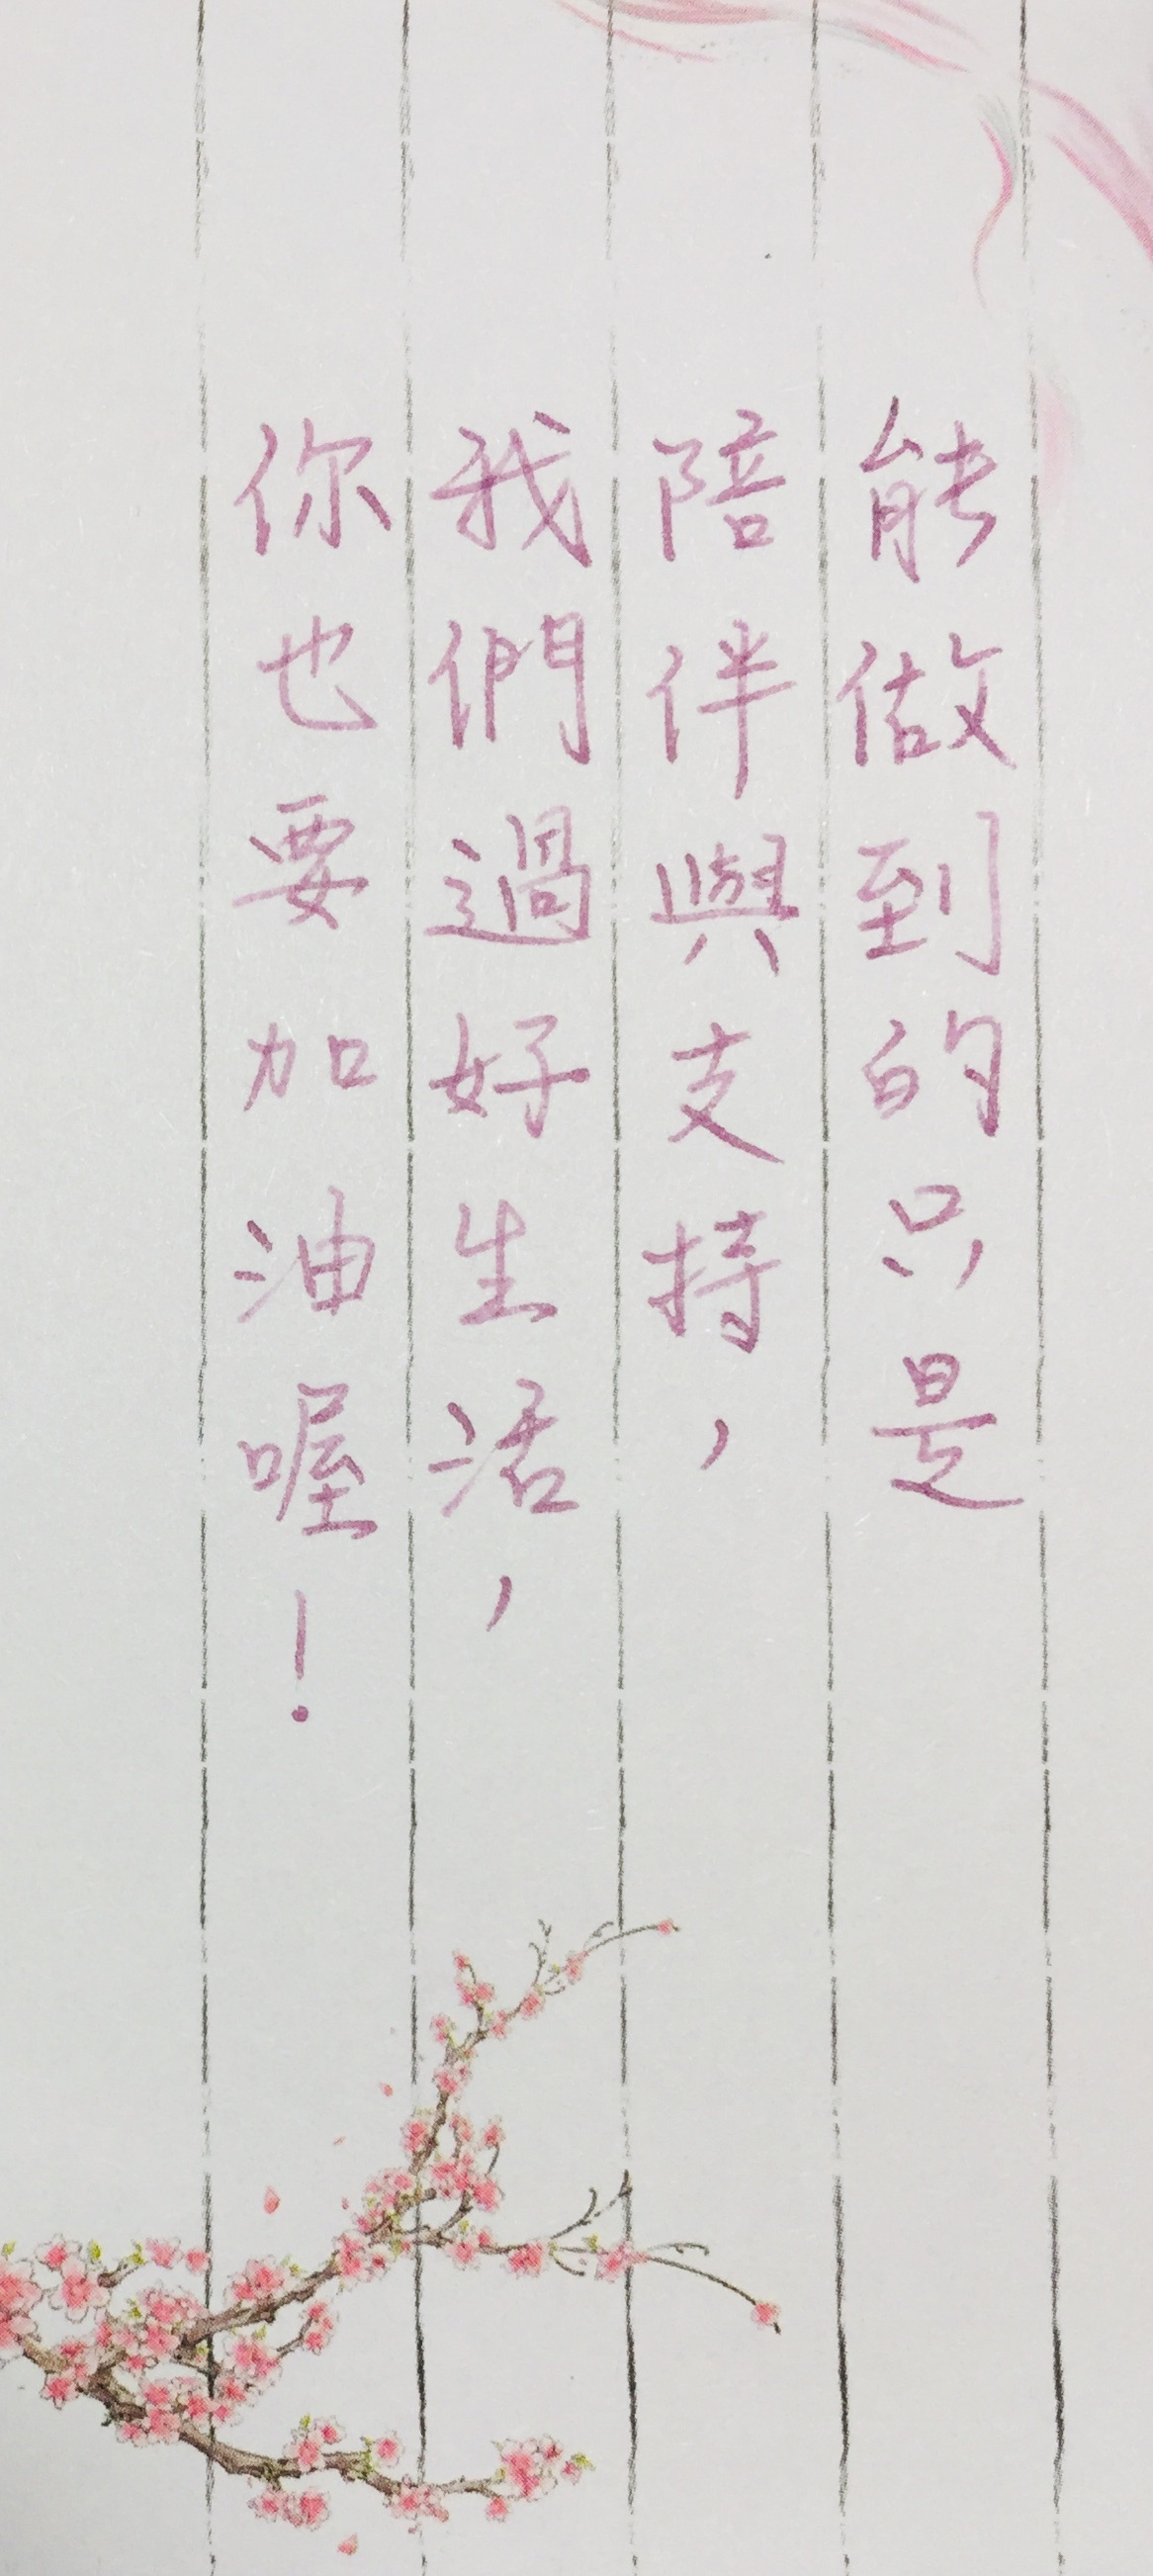 能做到的只是
陪伴與支持，
我們過好生活，
你也要加油喔！